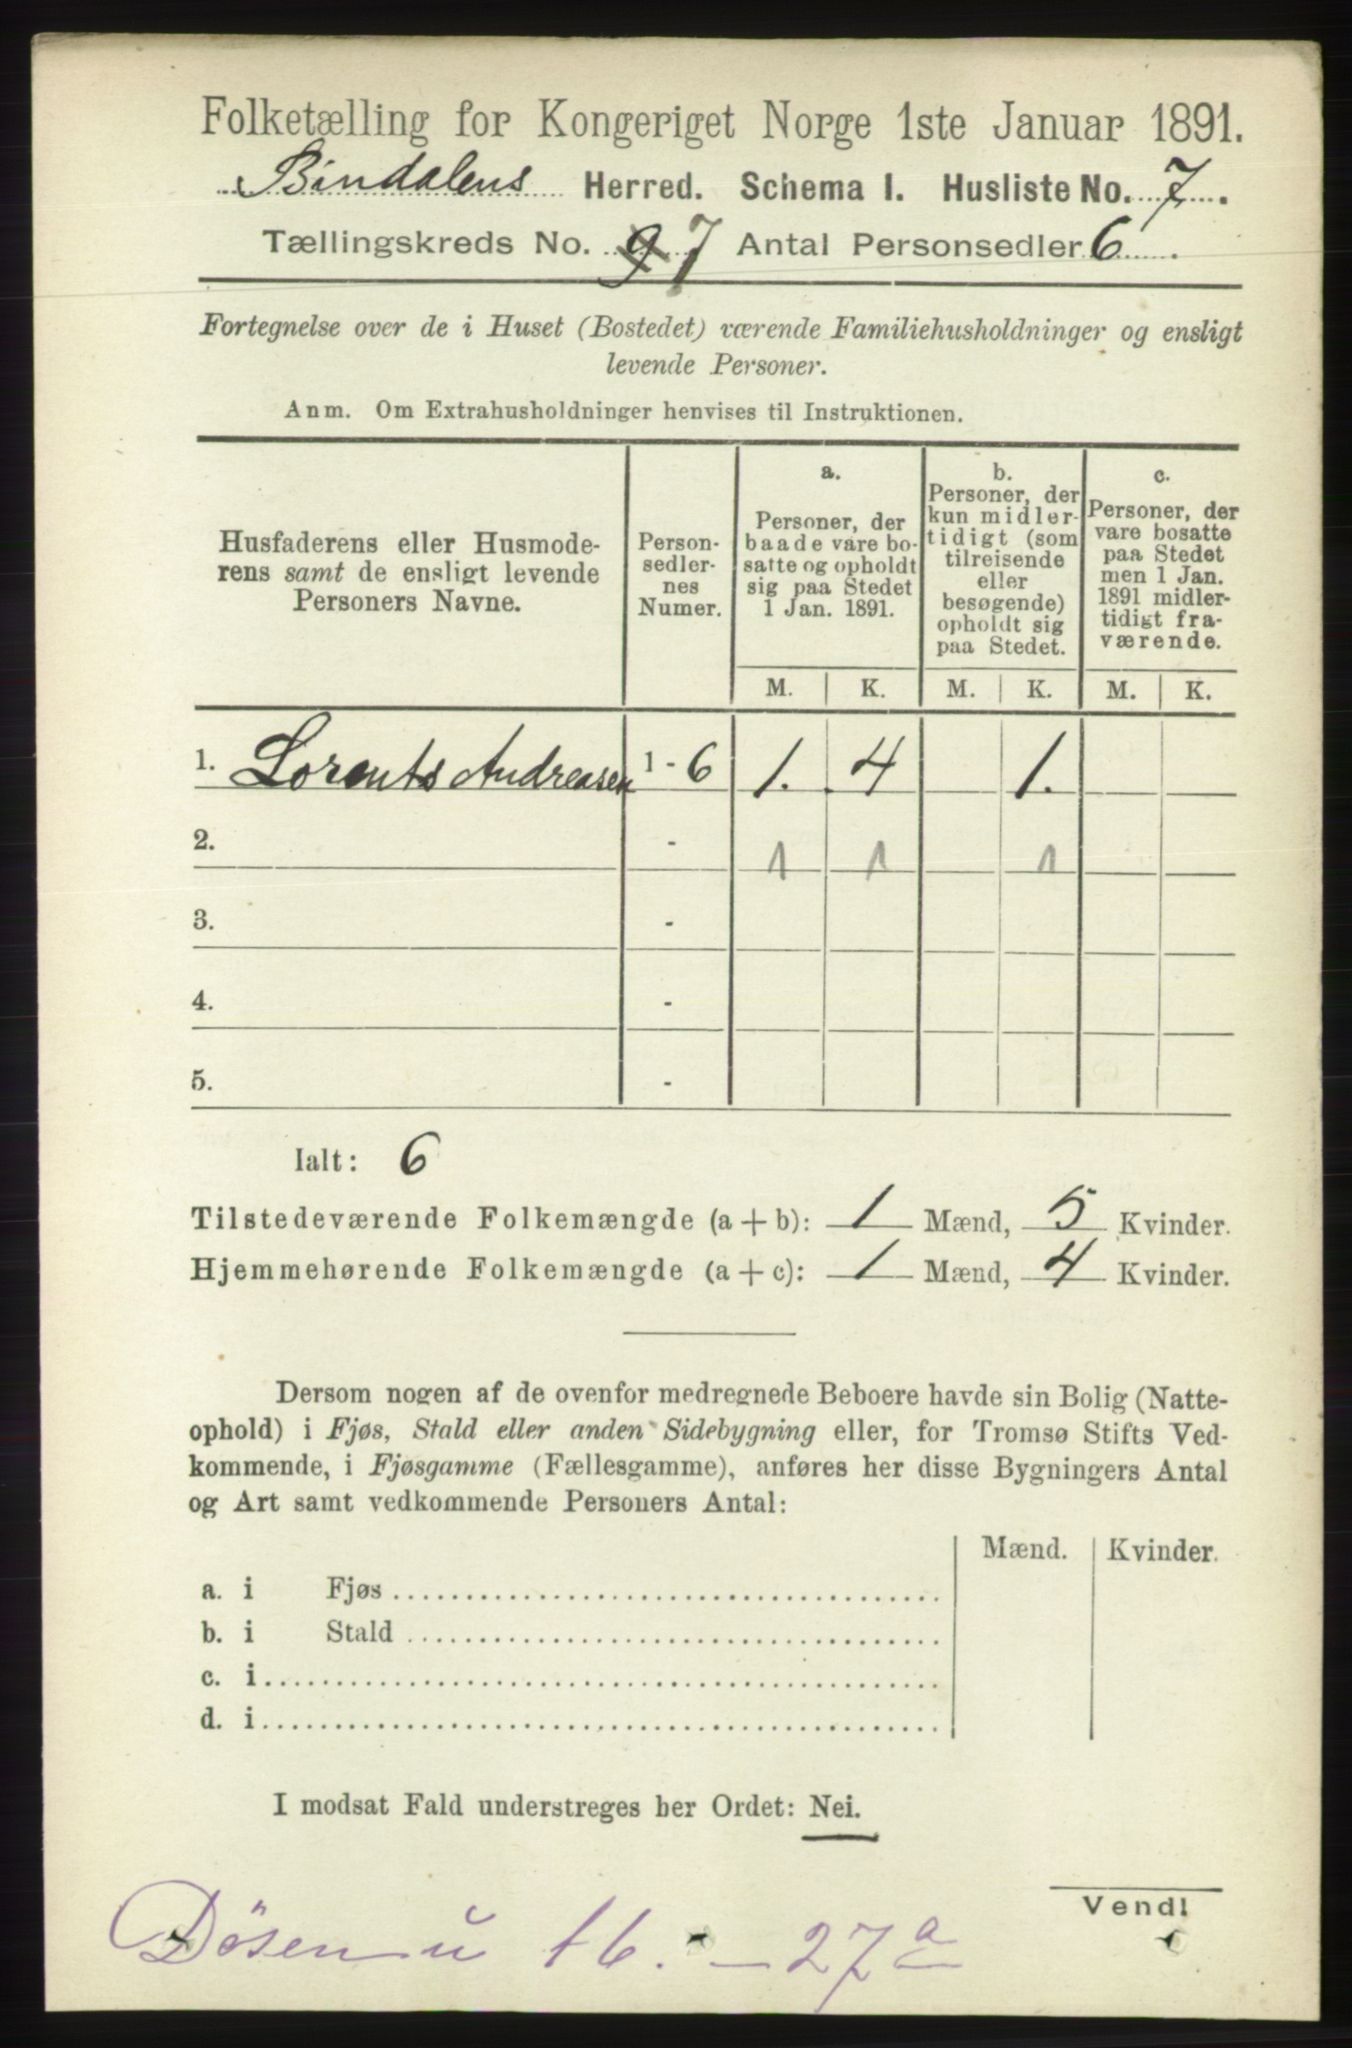 Folketælling for Kongeriget Norge 1ste Januar 1891.
Bindalens Herred. Schema I. Husliste No. 7.
Tællingskreds No. 9 7 Antal Personsedler 6.
Fortegnelse over de i Huset (Bostedet) værende Familiehusholdninger og ensligt
levende Personer.
Anm. Om Extrahusholdninger henvises til Instruktionen.
Husfaderens eller Husmode-
rens samt de ensligt levende
Personers Navne.
Person-
sedler-
nes
Numer.
a.
Personer, der
baade vare bo-
satte og opholdt
sig paa Stedet
1 Jan. 1891.
b.
Personer, der
kun midler-
tidigt (som
tilreisende
eller
besøgende)
opholdt sig
paa Stedet.
c.
Personer, der
vare bosatte
paa Stedet
men 1 Jan.
1891 midler-
tidigt fra-
værende.
M. K. M. K. M. K.
1. Lorents Andreasen 1 - 6 1. 4 1.
2. - 1 1 1
3. -
4. -
5. -
Ialt: 6
Tilstedeværende Folkemængde (a + b): 1 Mænd, 5 Kvinder.
Hjemmehørende Folkemængde (a + c): 1 Mænd, 4 Kvinder.
Dersom nogen af de ovenfor medregnede Beboere havde sin Bolig (Natte-
ophold) i Fjøs, Stald eller anden Sidebygning eller, for Tromsø Stifts Ved-
kommende, i Fjøsgamme (Fællesgamme), anføres her disse Bygningers Antal
og Art samt vedkommende Personers Antal:
Mænd. Kvinder.
a. i Fjøs
b. i Stald
c. i
d. i
I modsat Fald understreges her Ordet: Nei.
Vend!
Dösen u 16. - 27a